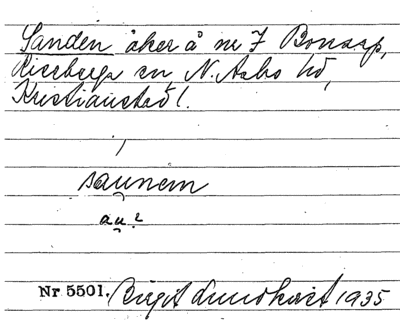 Sanden åker å nr 7 Bonarp,
Riseberga sn, N. Åsbo hd,
Kristianstad l.
saunėm
au?
Nr 5501. Birgit Lundkvist 1935